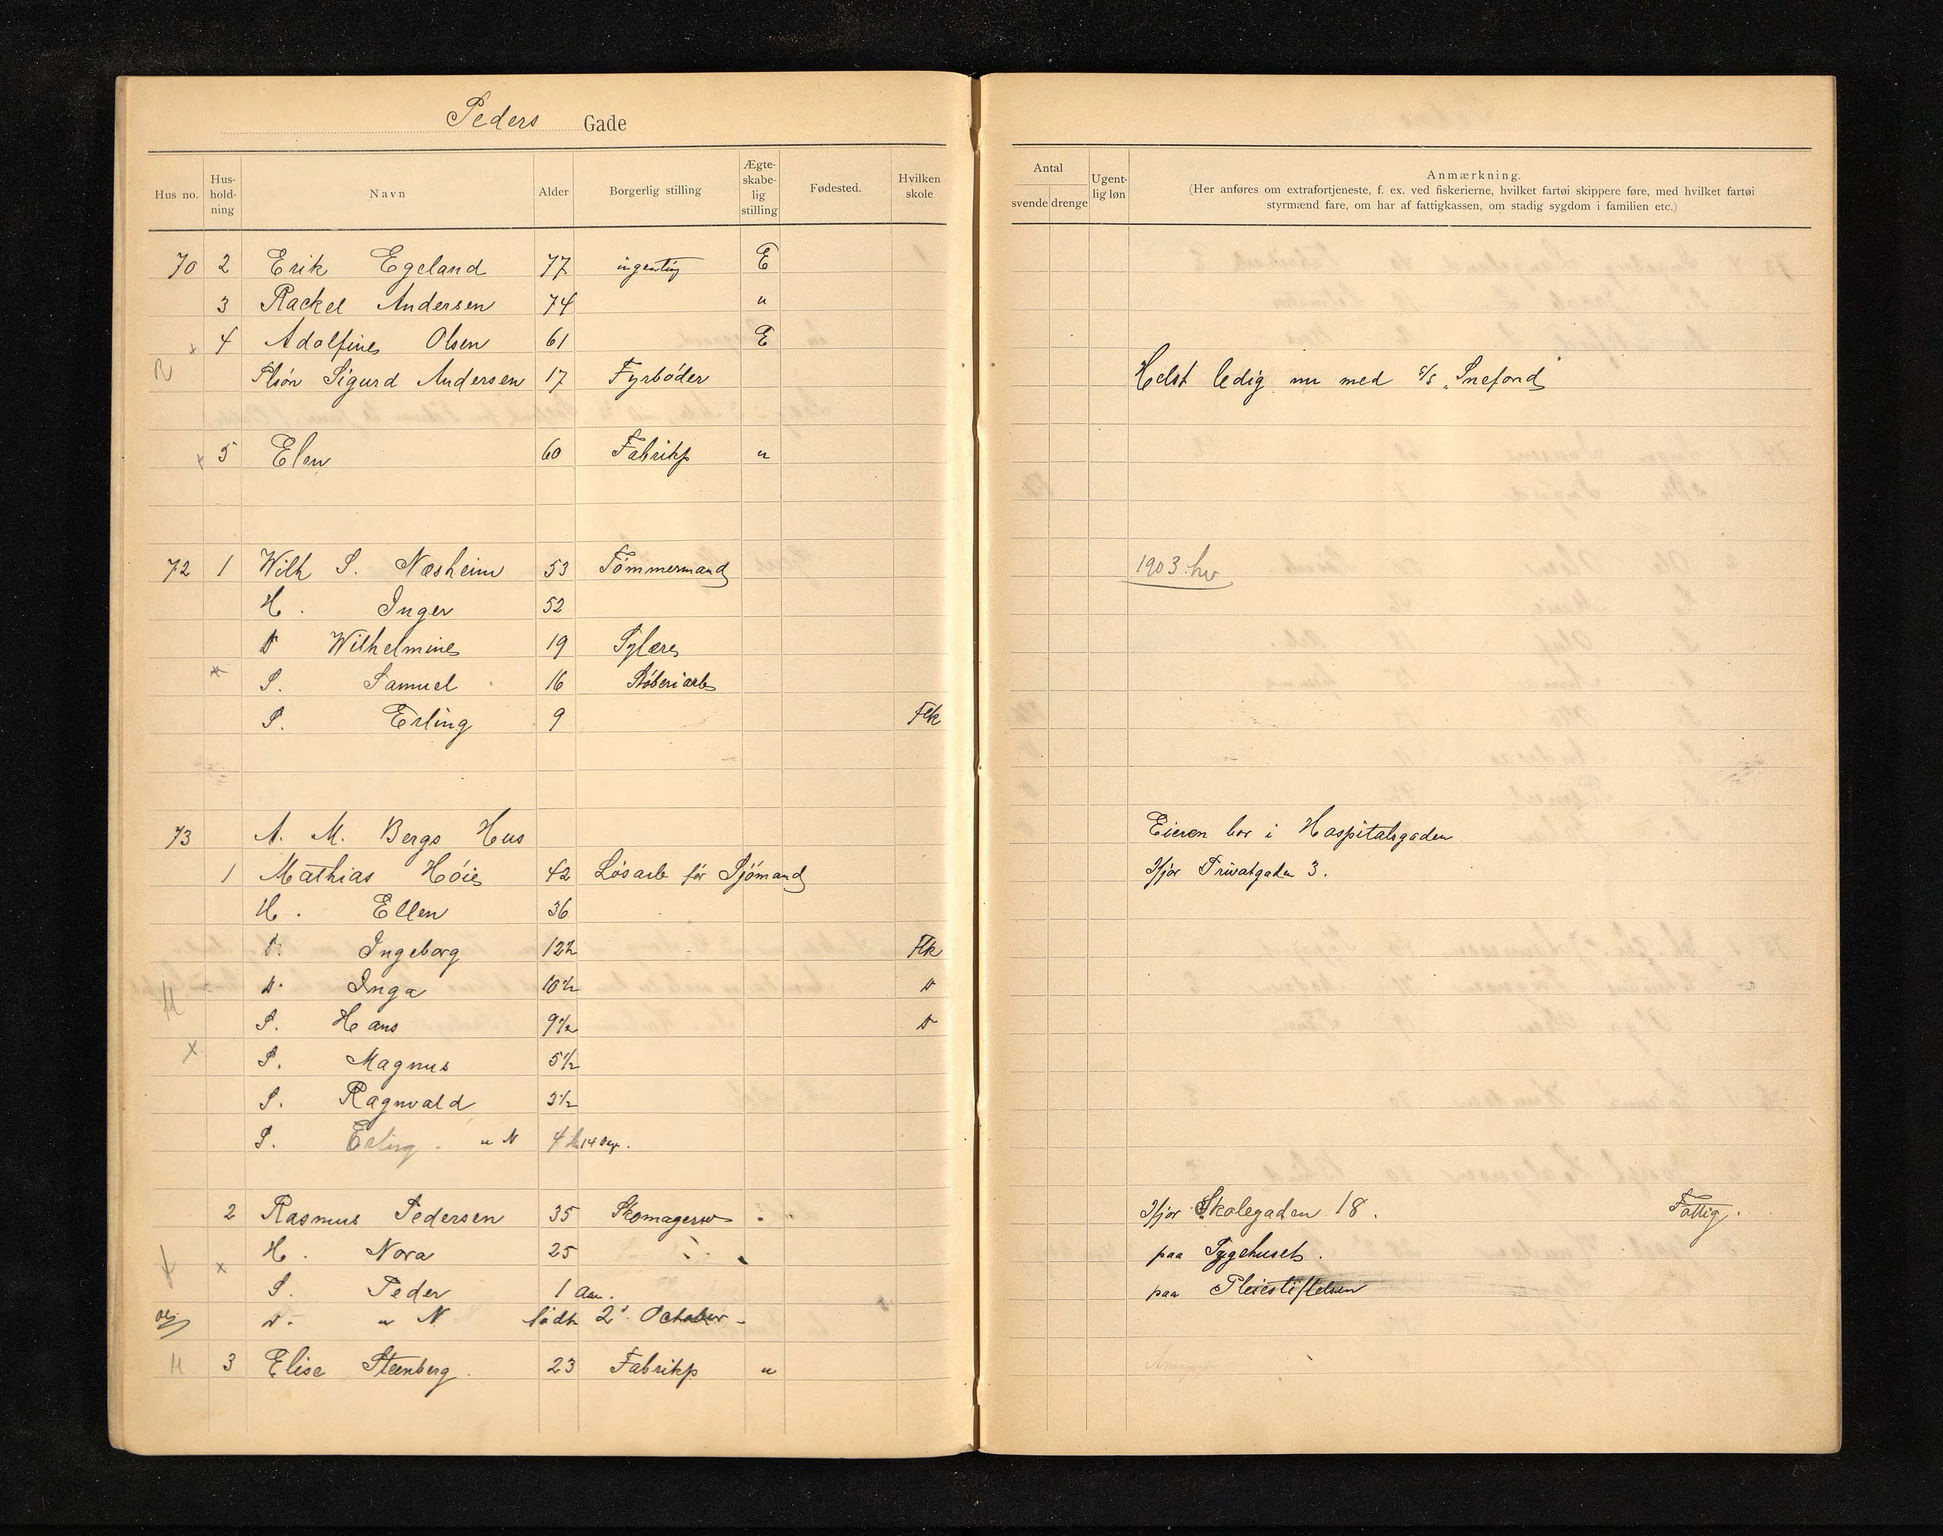 Peders Gade
Hus no. Hus-hold-ning Navn Alder Borgerlig stilling Ægte-skabe-lig stilling Fødested. Hvilken skole
Antal svende drenge Ugent-lig løn Anmærkning.
(Her anføres om extrafortjeneste, f. ex. ved fiskerierne, hvilket fartøi skippere føre, med hvilket fartøi
styrmænd fare, om har af fattigkassen, om stadig sygdom i familien etc.)
70 2 Erik Egeland 77 ingenting E
3 Rackel Andersen 74 "
x 4 Adolfine Olsen 61 E
R Sigurd Andersen 17 Fyrbøder Helst ledig nu med s/s „Snefond"
x 5 Elen 60 Fabrikp "
72 1 Wilh S. Næsheim 53 Tømmermand 1903
H. Inger 52
D Wilhelmine 19 Sylære
x S. Samuel 16 Støberiarb
S. Erling 9 Flk
73 A. M. Bergs Hus Eieren bor i Hospitalsgaden
1 Mathias Høie 42 Løsarb før Sjømand Ifjor Privatgaden 3.
H. Ellen 36
D. Ingeborg 12½ Flk
D. Inga 10½ D
H S. Hans 9½ D
x S. Magnus 5½
S. Ragnvald 3½
S. Erling. u N 4 14 Dage.
2 Rasmus Pedersen 35 Skomagersv Ifjor Skolegaden 18. Fattig.
x H. Nora 25 paa Sygehuset.
S. Peder 1 Aar. paa Pleiestiftelsen
D. u N. født 2' October
H 3 Elise Steenberg. 23 Fabrikp "